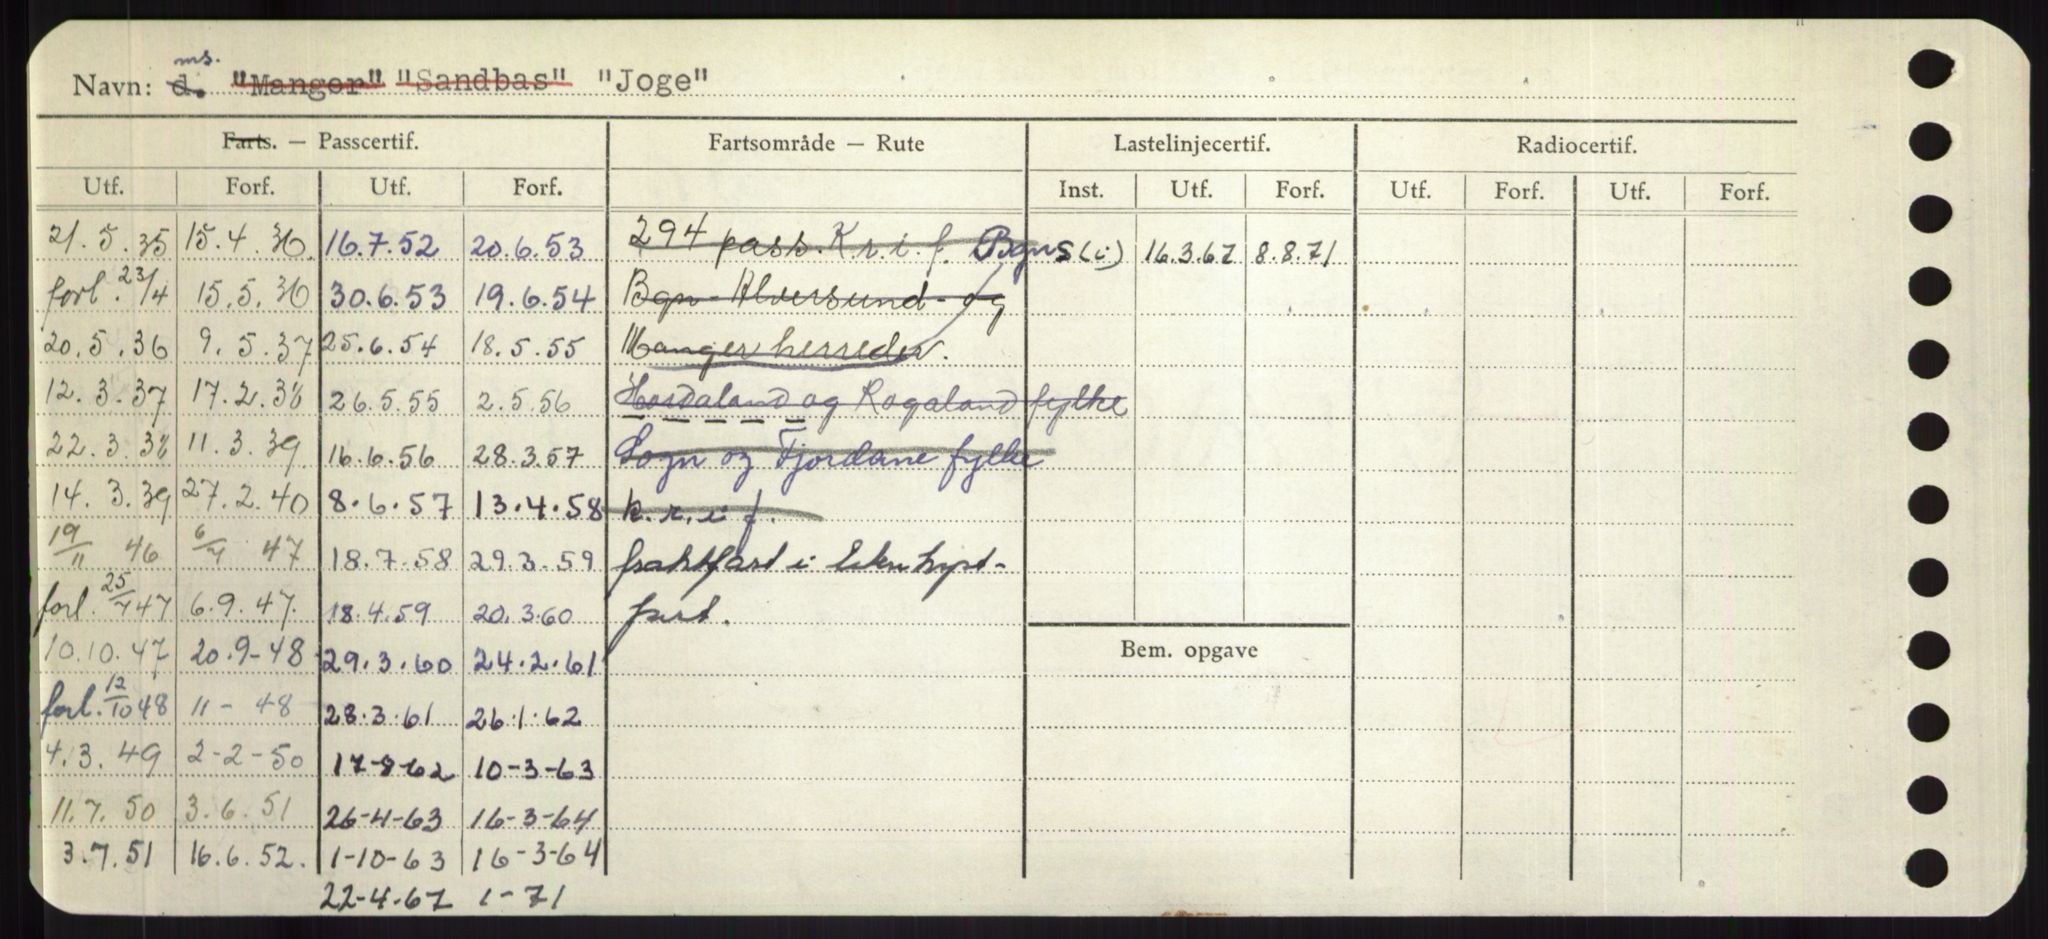 ms.
Navn: d. "Manger" "Sandbas" "Joge"
Farts. — Passcertif. Fartsområde — Rute Lastelinjecertif. Radiocertif.
Utf. Forf. Utf. Forf. Inst. Utf. Forf. Utf. Forf. Utf. Forf.
21.5.35 15.4.36. 16.7.52 20.6.53 294 pass. K.r.i.f. Bgns (i) 16.3.67 8.8.71
forl. 23/4 15.5.36 30.6.53 19.6.54 Bgn - Alversund - og
20.5.36 9.5.37 25.6.54 18.5.55 Manger herreder.
12.3.37 17.2.38 26.5.55 2.5.56 Hordaland og Rogaland fylke
22.3.38 11.3.39. 16.6.56 28.3.57 Sogn og Fjordane fylke
14.3.39 27.2.40 8.6.57 13.4.58 k.r.i f.
19/11 46 6/7 47 18.7.58 29.3.59 fraktfart i
forl. 25/7 47 6.9.47. 18.4.59 20.3.60 fart.
10.10.47 20.9-48 29.3.60 24.2.61 Bem. opgave
forl. 12/10 48 11 - 48 28.3.61 26.1.62
4.3.49 2-2-50 17-8-62 10-3-63
11.7.50 3.6.51 26-4-63 16-3-64
3.7.51 16.6.52. 1-10-63 16-3-64
22-4-67 1-71